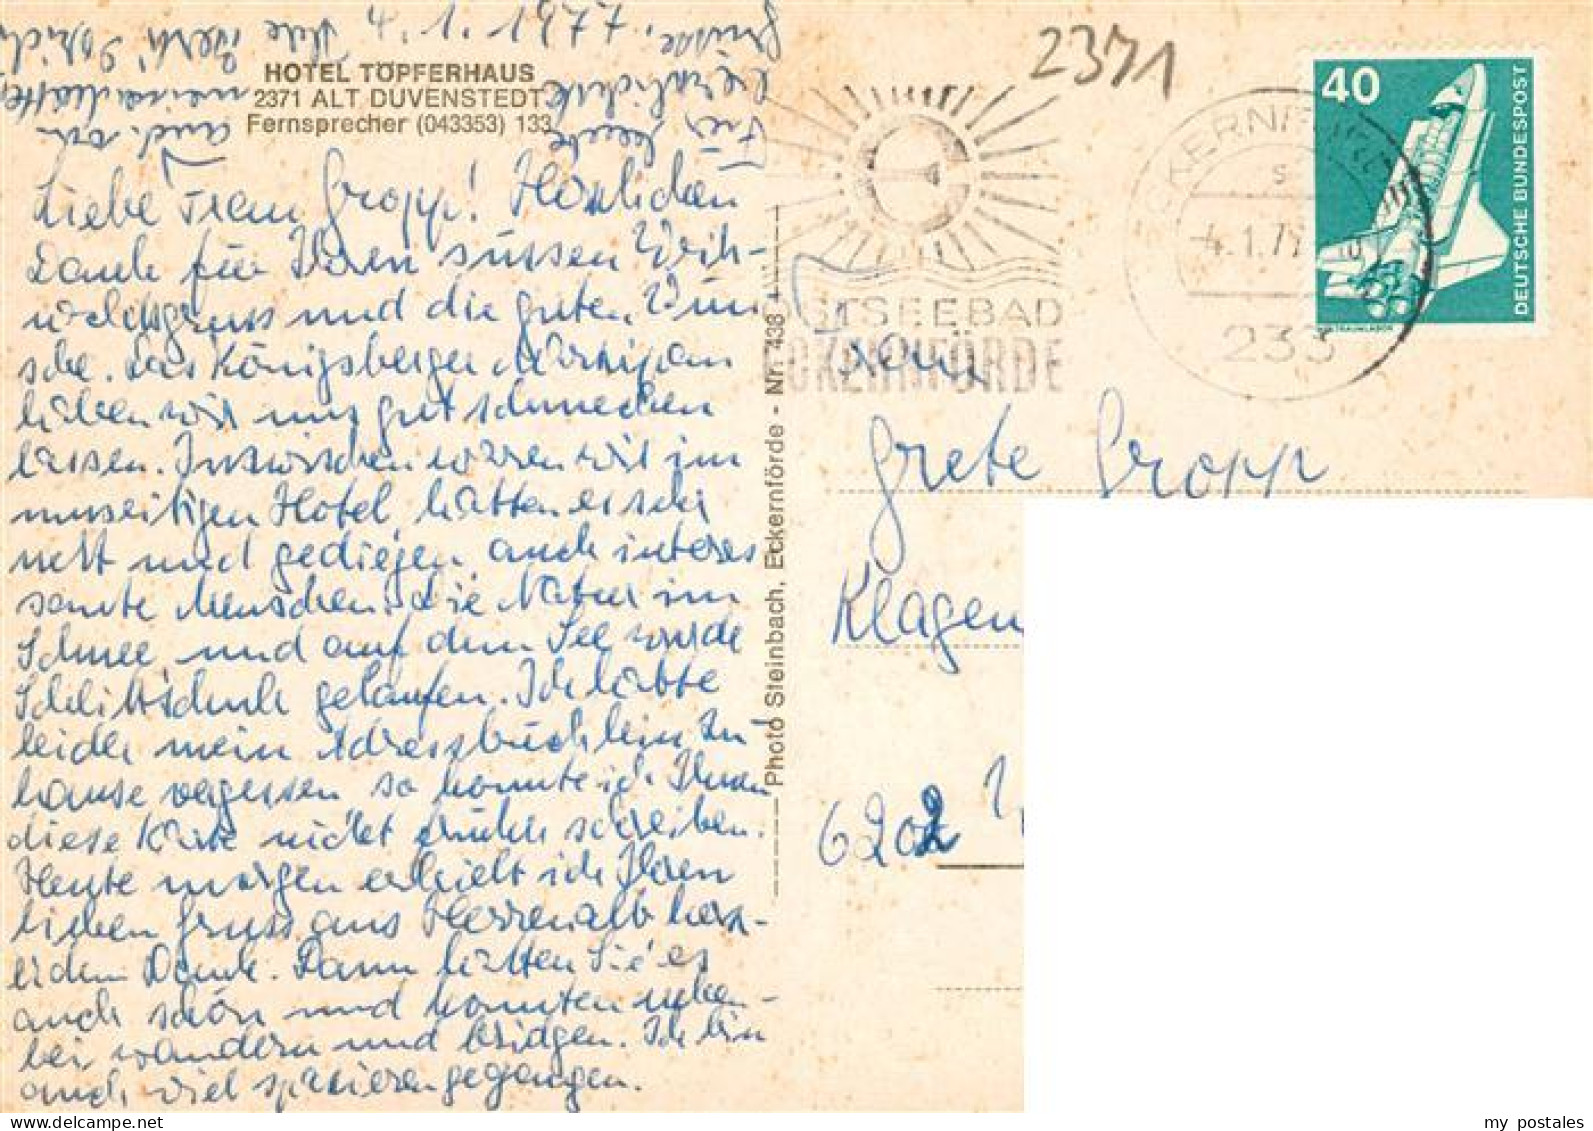 HOTEL TÖPFERHAUS
2371 ALT DUVENSTEDT
Fernsprecher (043353) 133
Liebe Frau Gropp! Herzlichen
Dank für Ihren süssen Weih-
nachtsgruss und die guten Wün
sche. Das Königsberger Marzipan
haben wir uns gut schmecken
lassen. Inzwischen waren wir im
umseitigen Hotel, hatten es sehr
nett und gediegen auch interes
sante Menschen. die Natur im
Schnee und auf dem See wurde
Schlittschuh gelaufen. Ich hatte
leider mein Adressbüchlein zu
hause vergessen so konnte ich Ihnen
diese Karte nicht früher schreiben.
Heute morgen erhielt ich Ihren
lieben Gruss aus Herrenalb herz-
lichen Dank. Dann hatten Sie es
auch schön und konnten neben-
bei wandern und bridgen. Ich bin
auch viel spazierengegangen.
Für heute
herzlichste
Grüsse, 
und von
4.1.
Photo Steinbach, Eckernförde - Nr. 438
2371
OSTSEEBAD
ECKERNFÖRDE
ECKERNFÖRDE
-4.1.79
233
40
DEUTSCHE BUNDESPOST
WELTRAUMLABOR
Frau
Grete Gropp
Klagen
6202
my postales